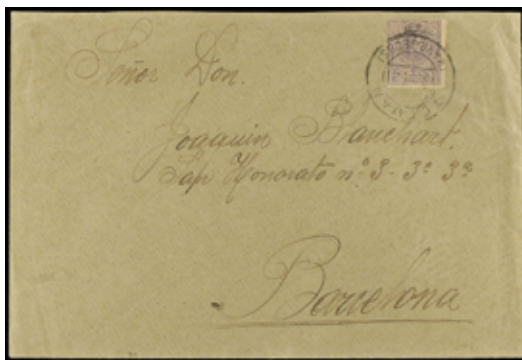 Señor Don.
Joaquin Blanchart.
San Honorato nº 3. 3º 3ª
Barcelona